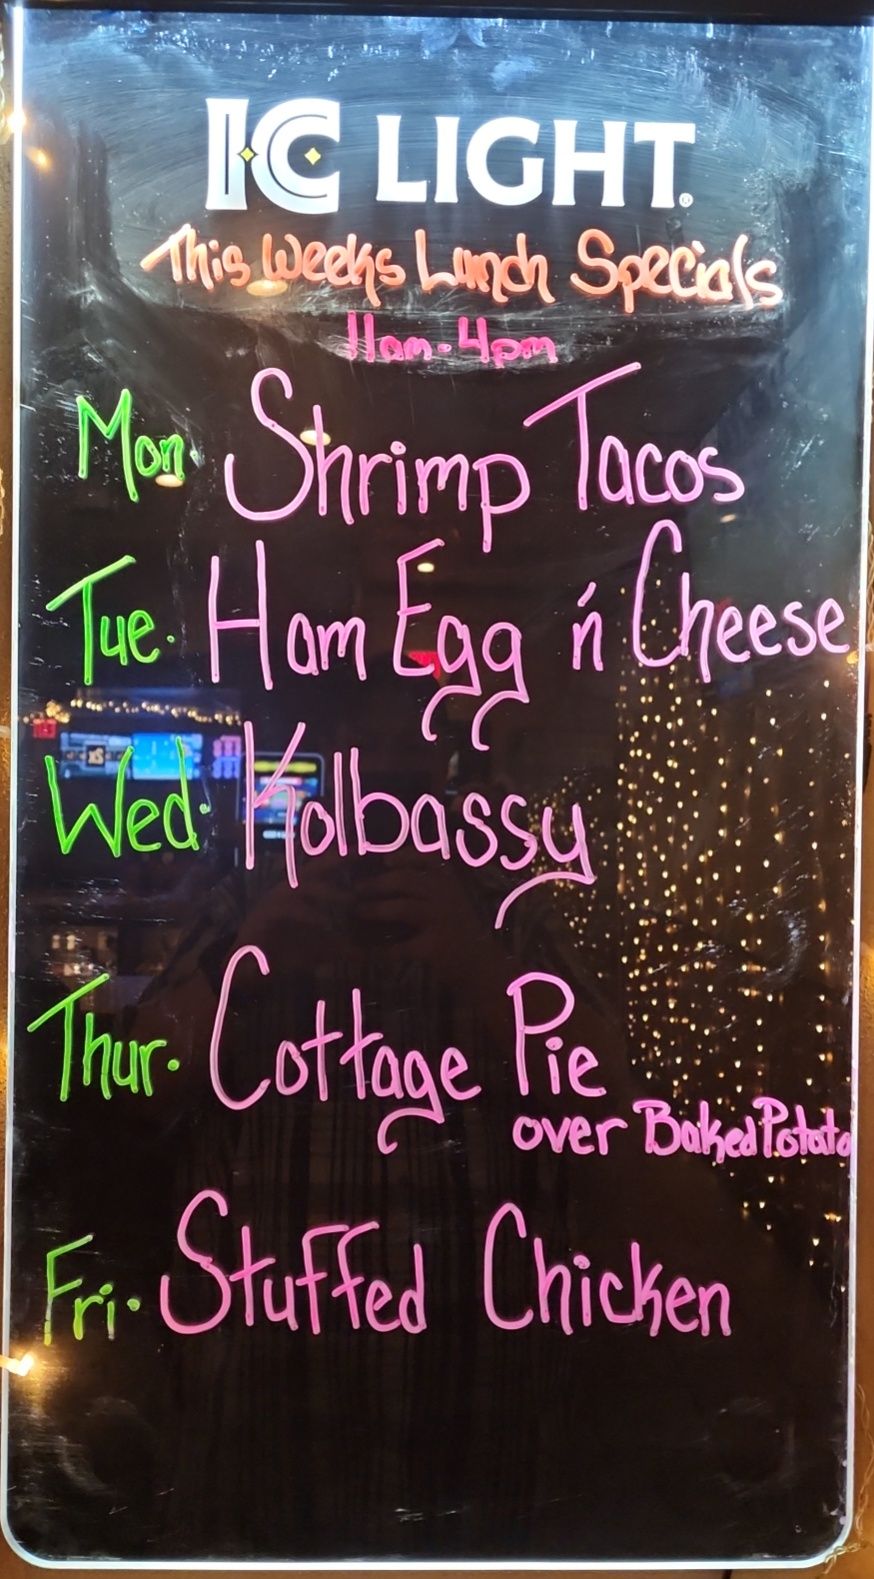 IC LIGHT®
This Weeks Lunch Specials
11am-4pm
Mon. Shrimp Tacos
Tue. Ham Egg ń Cheese
Wed. Kolbassy
Thur. Cottage Pie
over Baked Potato
Fri. Stuffed Chicken